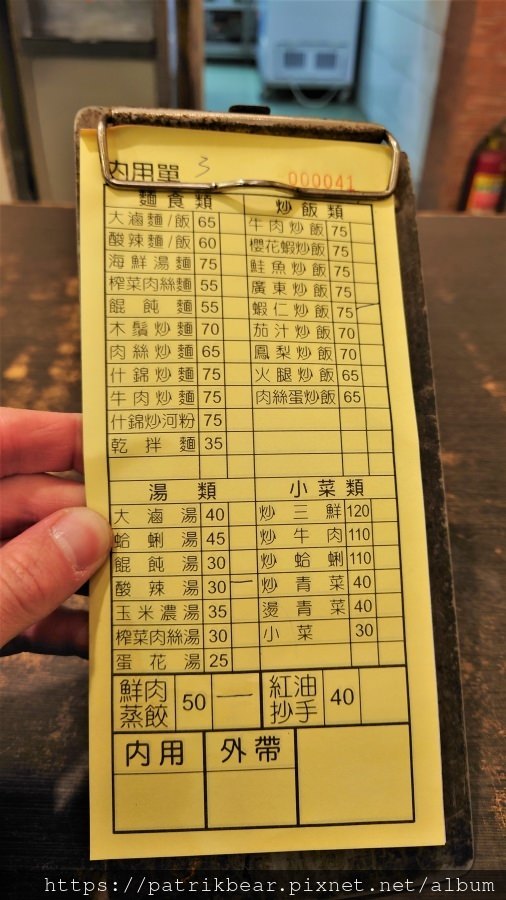 內用單 3 000041
麵食類 炒飯類
大滷麵/飯 65 牛肉炒飯 75
酸辣麵/飯 60 櫻花蝦炒飯 75
海鮮湯麵 75 鮭魚炒飯 75
榨菜肉絲麵 55 廣東炒飯 75
餛飩麵 55 蝦仁炒飯 75 一
木鬚炒麵 70 茄汁炒飯 70
肉絲炒麵 65 鳳梨炒飯 70
什錦炒麵 75 火腿炒飯 65
牛肉炒麵 75 肉絲蛋炒飯 65
什錦炒河粉 75
乾拌麵 35
湯類 小菜類
大滷湯 40 炒三鮮 120
蛤蜊湯 45 炒牛肉 110
餛飩湯 30 炒蛤蜊 110
酸辣湯 30 一 炒青菜 40
玉米濃湯 35 燙青菜 40
榨菜肉絲湯 30 小菜 30
蛋花湯 25
鮮肉蒸餃 50 一 紅油抄手 40
內用 外帶
https://patrikbear.pixnet.net/album